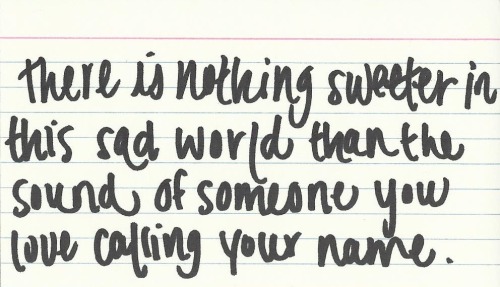 there is nothing sweeter in
this sad world than the
sound of someone you
love calling your name.